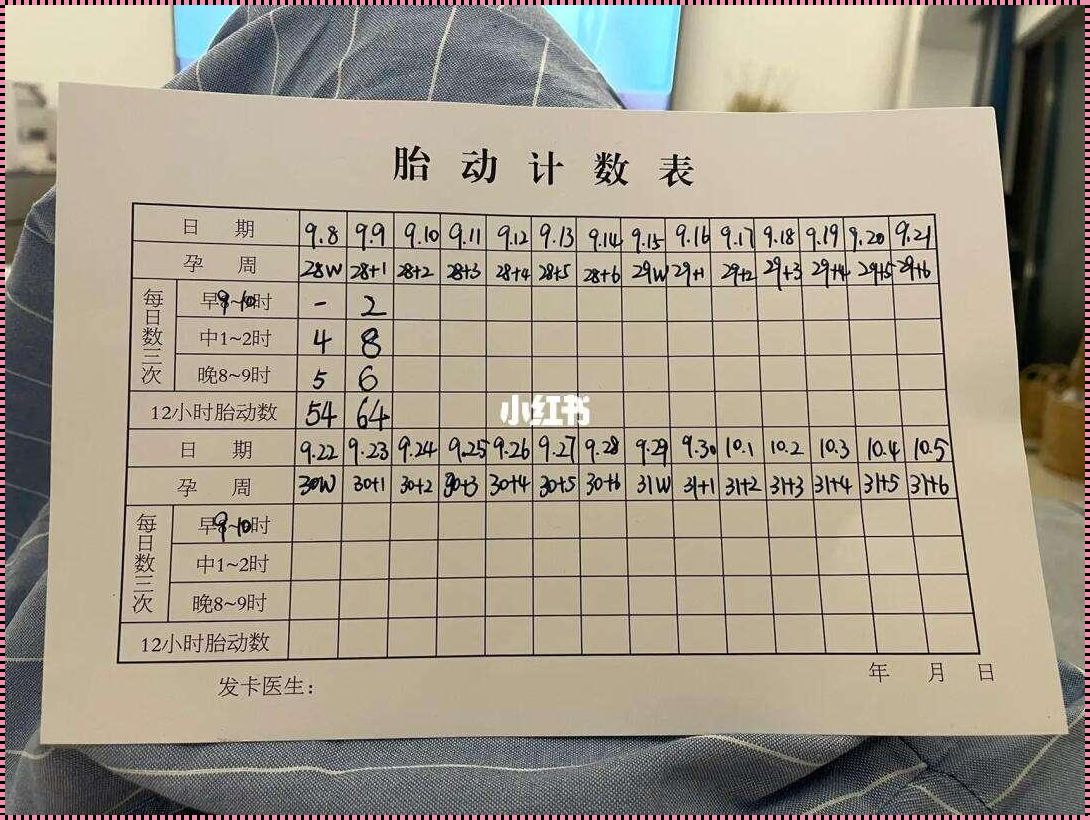 胎动计数表
日期 9.8 9.9 9.10 9.11 9.12 9.13 9.14 9.15 9.16 9.17 9.18 9.19 9.20 9.21
孕周 28W 28+1 28+2 28+3 28+4 28+5 28+6 29W 29+1 29+2 29+3 29+4 29+5 29+6
每日数三次
早9~10时 - 2
中1~2时 4 8
晚8~9时 5 6
12小时胎动数 54 64
小红书
日期 9.22 9.23 9.24 9.25 9.26 9.27 9.28 9.29 9.30 10.1 10.2 10.3 10.4 10.5
孕周 30W 30+1 30+2 30+3 30+4 30+5 30+6 31W 31+1 31+2 31+3 31+4 31+5 31+6
每日数三次
早9~10时
中1~2时
晚8~9时
12小时胎动数
发卡医生： 年 月 日